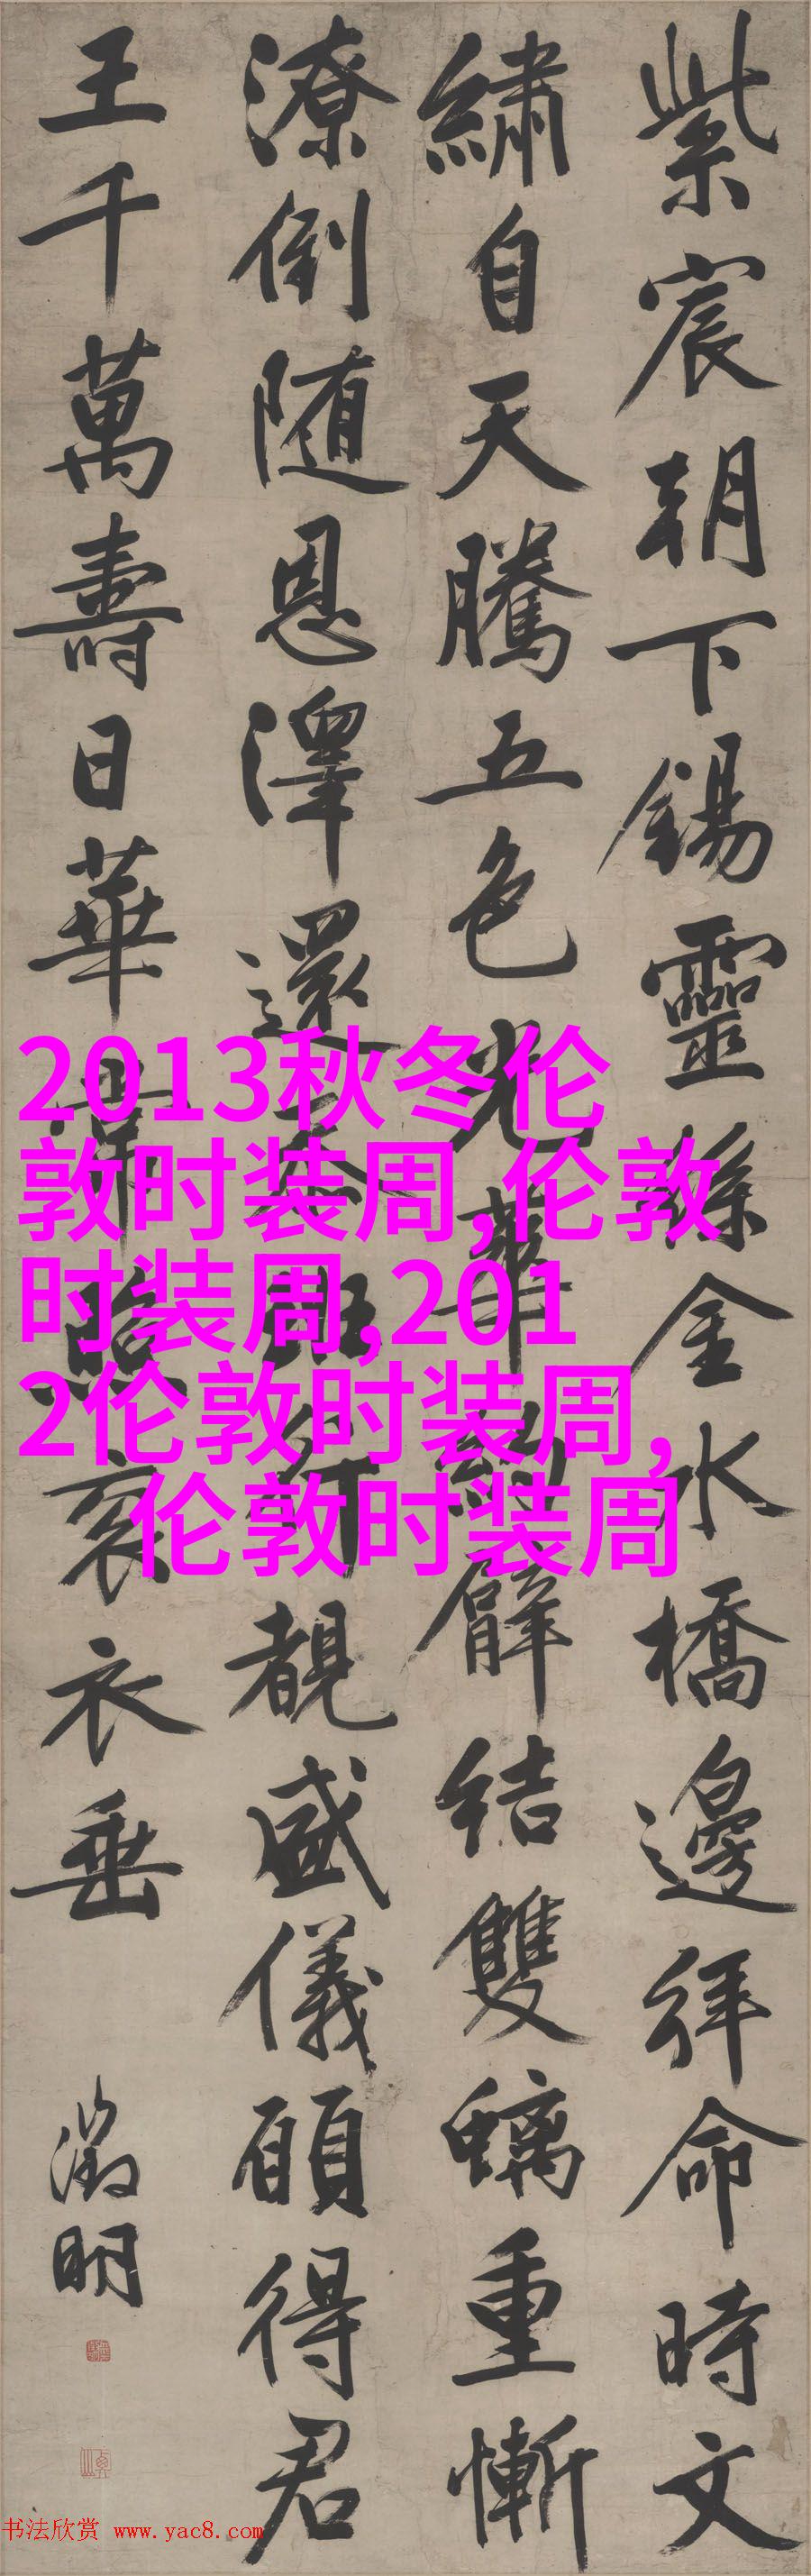 紫宸朝下錫靈絲金水橋邊拜命時文
繡自天騰五色光華約臂結雙螭重慚
潦倒隨恩澤還忝班行覩盛儀願得君
王千萬壽日華常照袞衣垂
徵明
2013秋冬伦
敦时装周,伦敦
时装周,201
2伦敦时装周,
伦敦时装周
书法欣赏 www.yac8.com